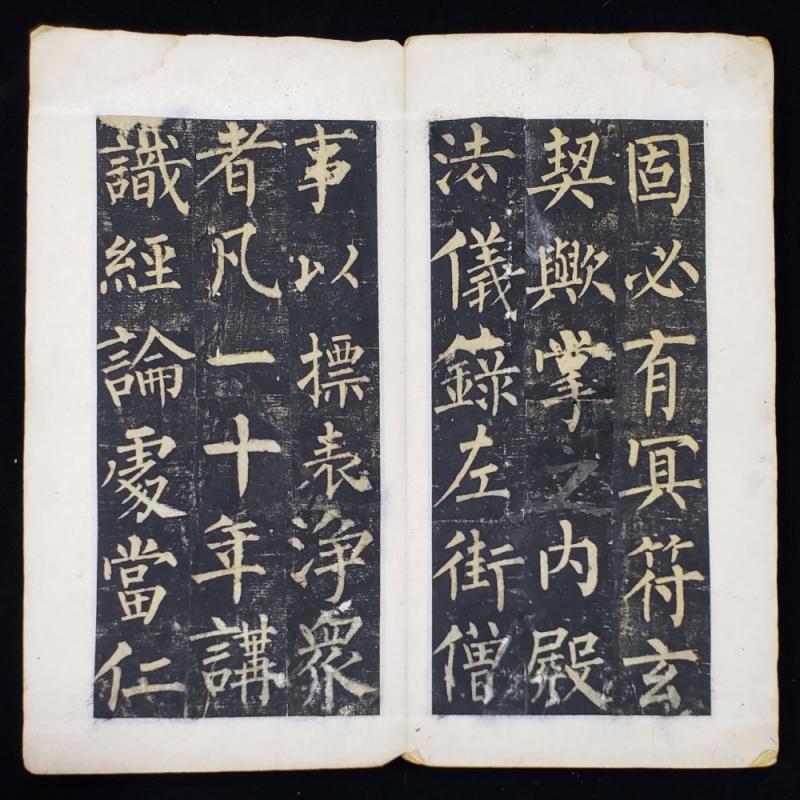 固必有冥符玄
契歟掌之内殿
法儀錄左街僧
事以摽表净衆
者凡一十年講
識經論處當仁